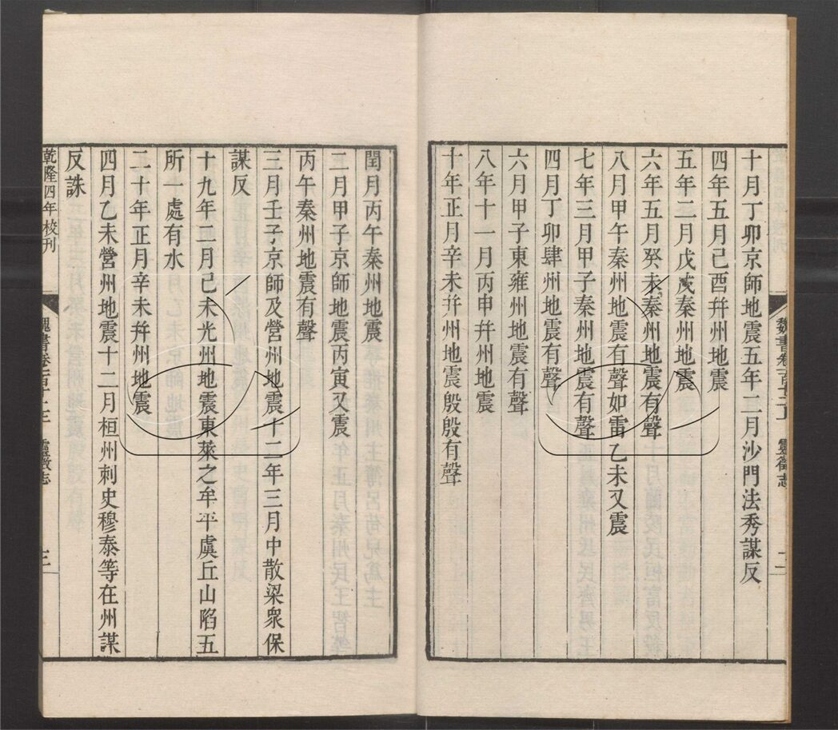 十月丁卯京師地震五年二月沙門法秀謀反
四年五月己酉幷州地震
五年二月戊戌秦州地震
六年五月癸未秦州地震有聲
八月甲午秦州地震有聲如雷乙未又震
七年三月甲子秦州地震有聲
四月丁卯肆州地震有聲
六月甲子東雍州地震有聲
八年十一月丙申幷州地震
十年正月辛未幷州地震殷殷有聲
閏月丙午秦州地震
二月甲子京師地震丙寅又震
丙午秦州地震有聲
三月壬子京師及營州地震十二年三月中散梁衆保
謀反
十九年二月己未光州地震東萊之牟平虞丘山陷五
所一處有水
二十年正月辛未幷州地震
四月乙未營州地震十二月桓州刺史穆泰等在州謀
反誅
乾隆四年校刊
魏書卷一百十二上 靈徵志
三